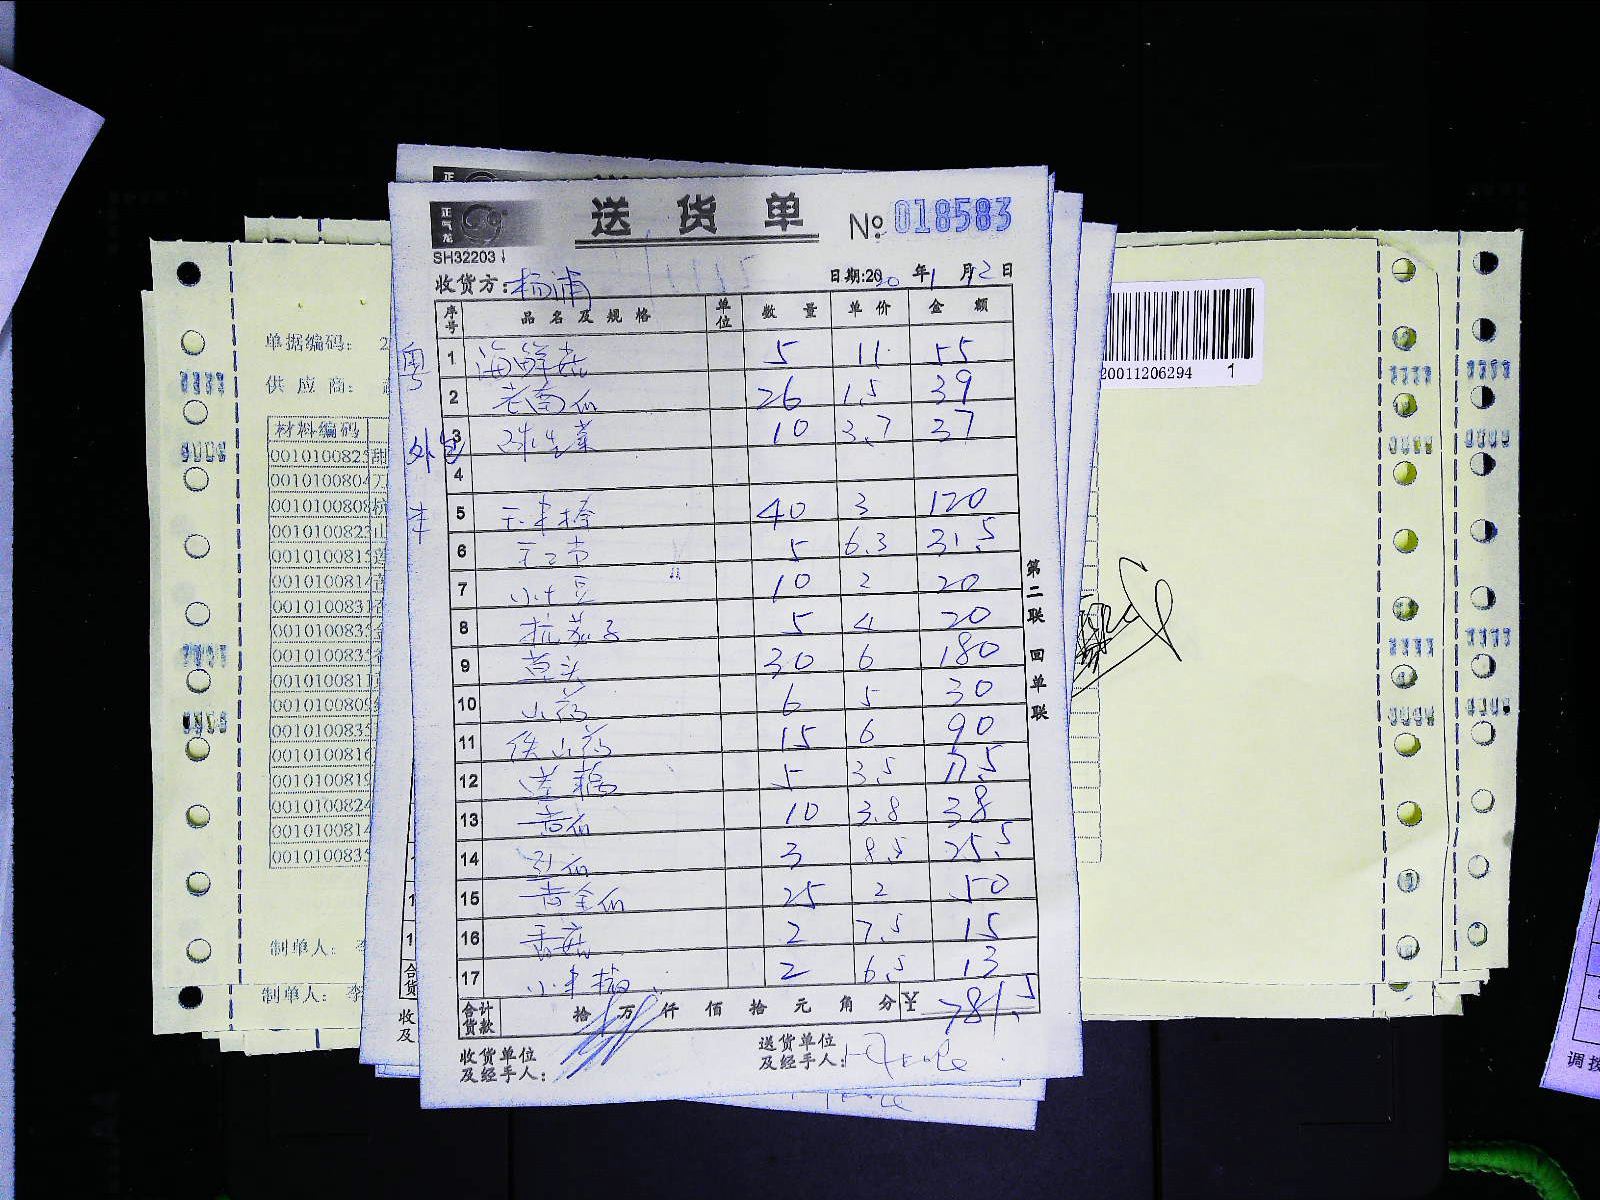 正气龙
送货单
№ 018583
SH32203
收货方: 杨浦
日期:2020年1月2日
序号 品名及规格 单位 数量 单价 金额
1 海鲜菇 5 11 55
2 老南瓜 26 1.5 39
3 球生菜 10 3.7 37
4
5 玉米棒 40 3 120
6 5 6.3 31.5
7 10 2 20
8 杭茄子 5 4 20
9 草头 30 6 180
10 山药 6 5 30
11 铁山药 15 6 90
12 莲藕 5 3.5 17.5
13 黄瓜 10 3.8 38
14 3 8.5 25.5
15 黄金瓜 25 2 50
16 香菇 2 7.5 15
17 小米椒 2 6.5 13
合计货款 拾 万 仟 佰 拾 元 角 分 ¥ 781.5
收货单位及经手人:
送货单位及经手人:
第二联 回单联
粤
外
单据编码: 2
供应商:
材料编码
0010100825 甜
0010100804
0010100808 杭
0010100823 山
0010100815 莲
0010100814
0010100831
0010100835
0010100835
0010100811
0010100809
001010083
0010100816
0010100819
001010082
0010100814
001010083
制单人: 李
制单人: 李
合
货
收
及
20011206294 1
调拨